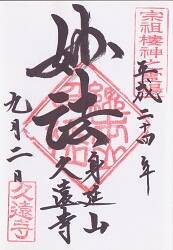 宗祖棲神之霊場
平成二十四年
妙法
身延山
久遠寺
九月二日
久遠寺